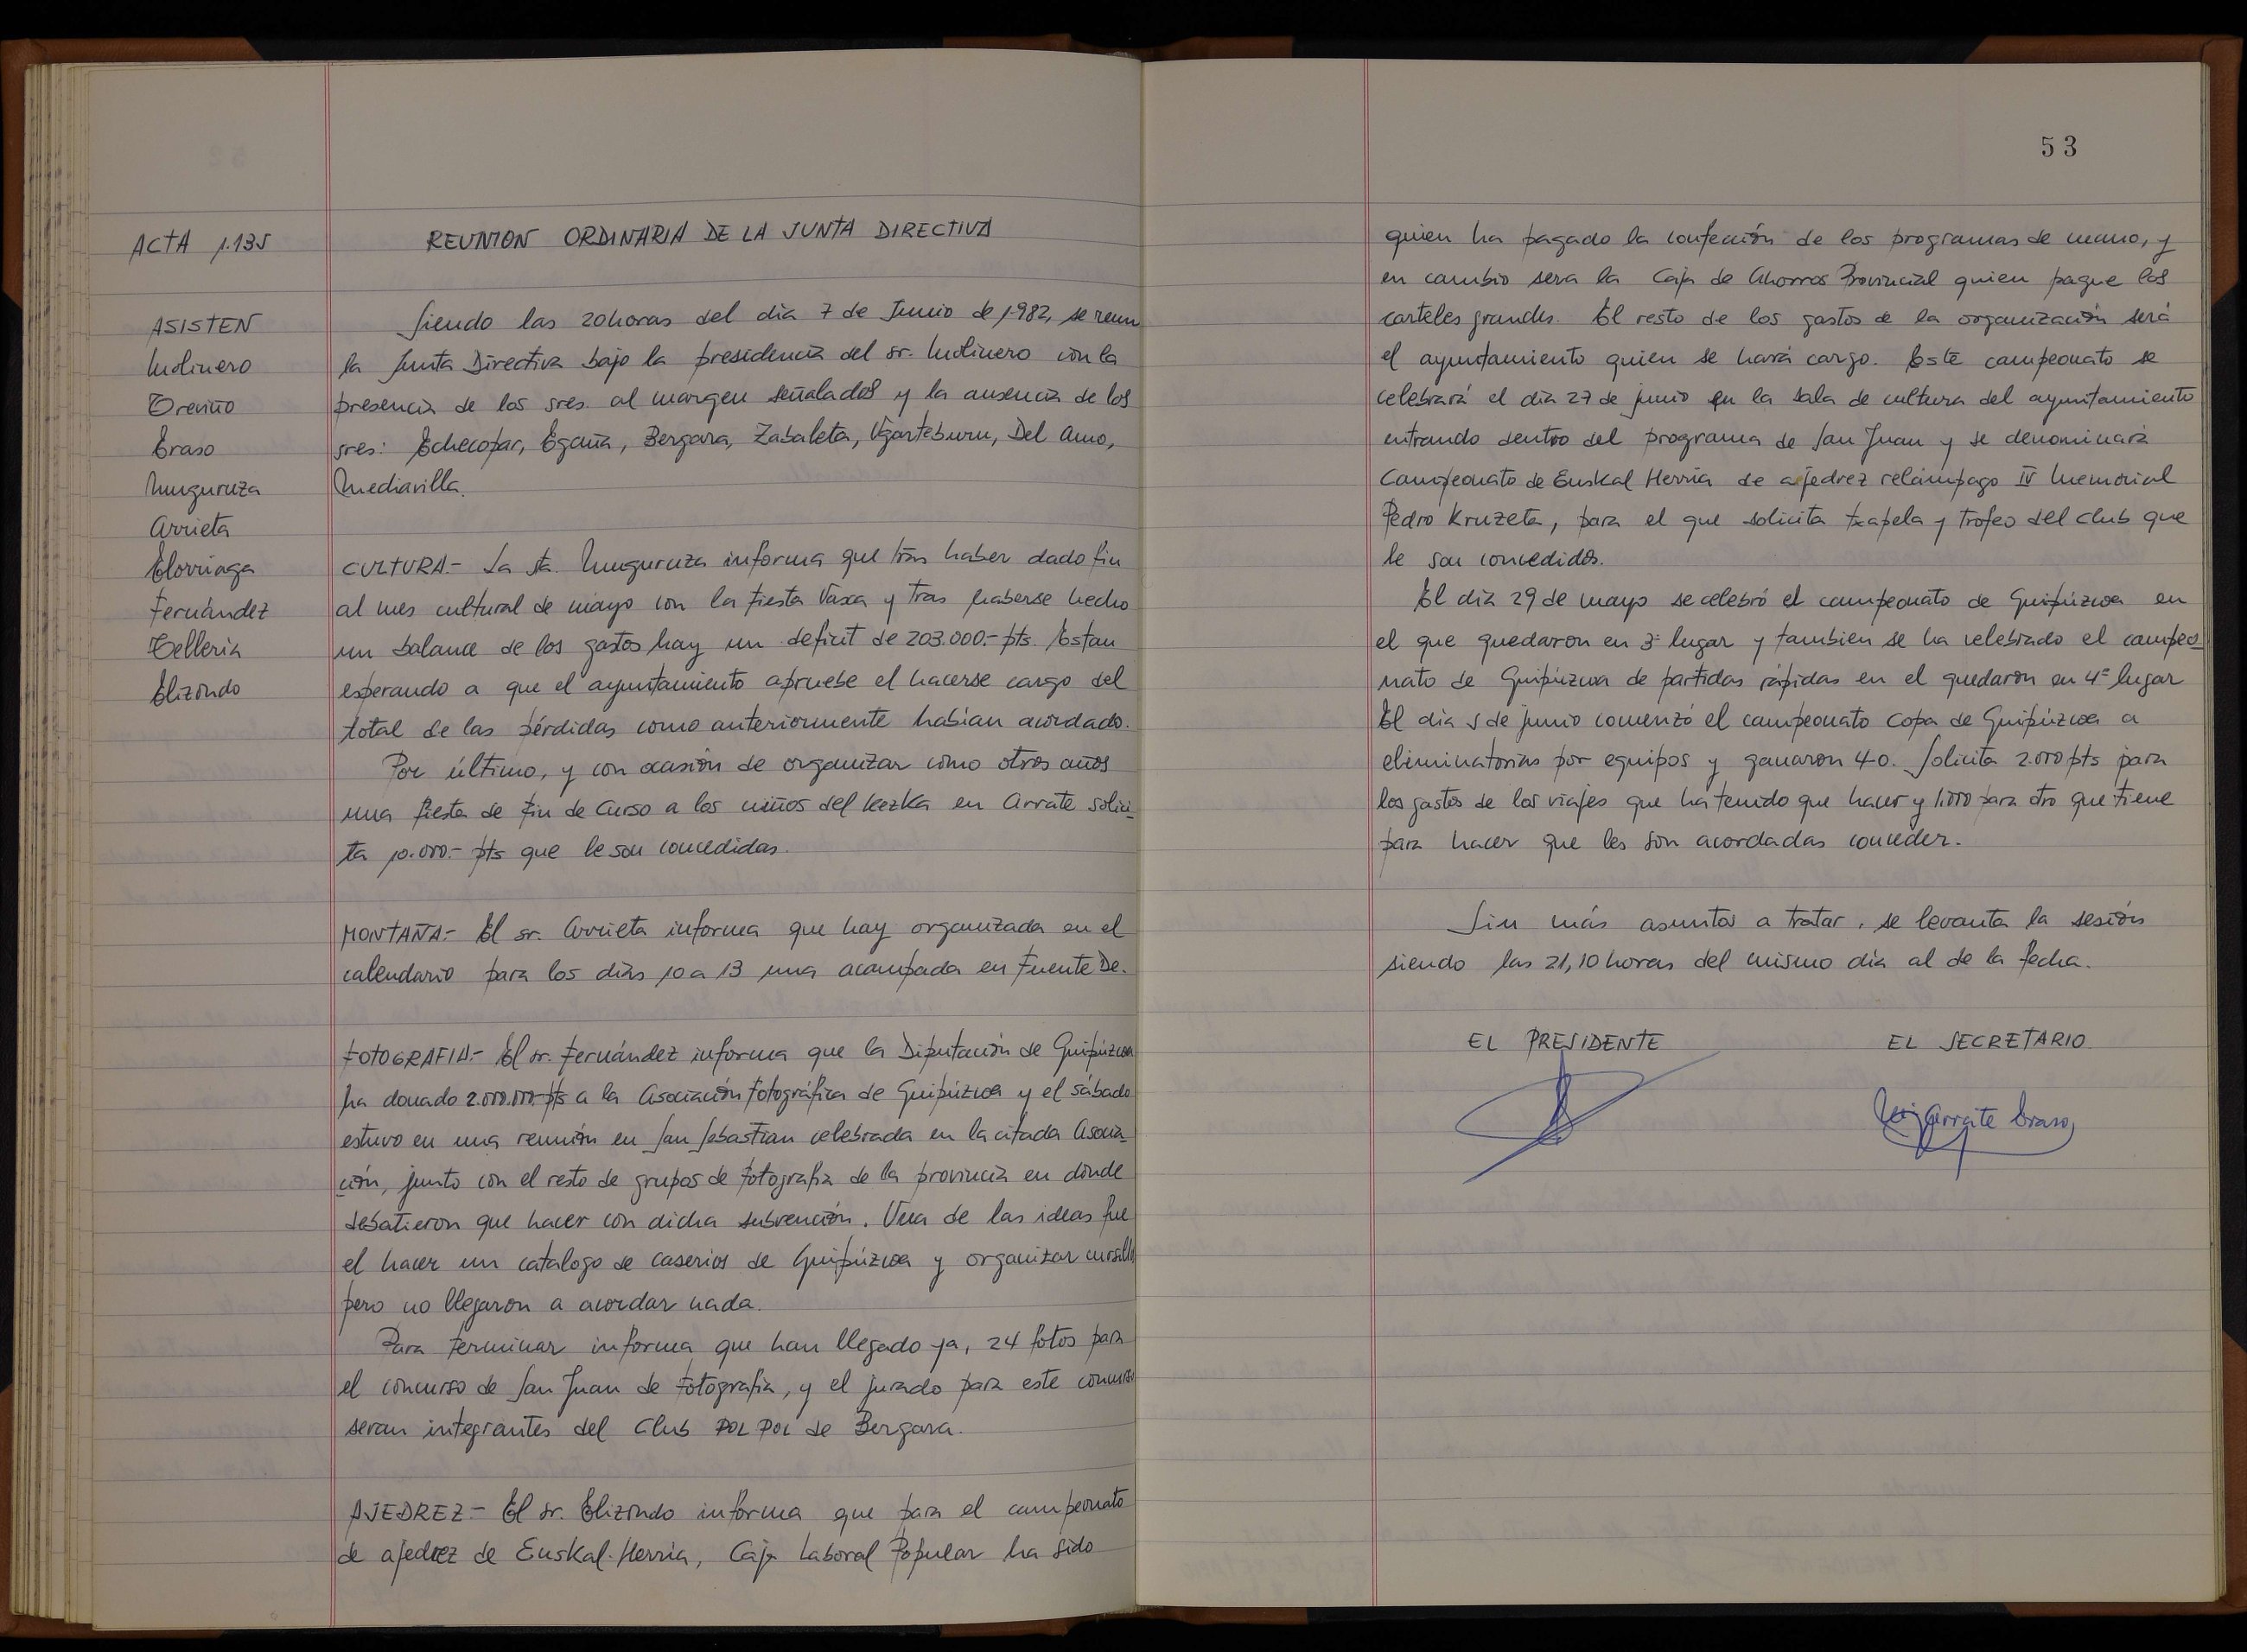 ACTA 1.135
REUNION ORDINARIA DE LA JUNTA DIRECTIVA
ASISTEN
Molinero
Treviño
Eraso
Munguruza
Arrieta
Elorriaga
Fernández
Telleria
Elizondo
Siendo las 20 horas del dia 7 de Junio de 1.982, se reun
la Junta Directiva bajo la presidencia del sr. Molinero con la
presencia de los sres. al margen señalados y la ausencia de los
sres: Echecopar, Egaña, Bergara, Zabaleta, Ugarteburu, Del Amo,
Mediavilla.
CULTURA.- La sta. Munguruza informa que tras haber dado fin
al mes cultural de mayo con la fiesta Vasca y tras haberse hecho
un balance de los gastos hay un deficit de 203.000.- pts. Estan
esperando a que el ayuntamiento apruebe el hacerse cargo del
total de las pérdidas como anteriormente habian acordado.
Por último, y con ocasión de organizar como otros años
una fiesta de fin de curso a los niños del Kezka en Arrate solici-
ta 10.000.- pts que le son concedidas.
MONTAÑA.- El sr. Arrieta informa que hay organizada en el
calendario para los dias 10 a 13 una acampada en Fuente De.
FOTOGRAFIA.- El sr. Fernández informa que la Diputación de Guipúzcoa
ha donado 2.000.000.- pts a la Asociación Fotográfica de Guipúzcoa y el sábado
estuvo en una reunión en San Sebastian celebrada en la citada Asocia-
ción, junto con el resto de grupos de fotografia de la provincia en donde
debatieron que hacer con dicha subvención. Una de las ideas fue
el hacer un catalogo de caserios de Guipúzcoa y organizar cursillo
pero no llegaron a acordar nada.
Para terminar informa que han llegado ya, 24 fotos para
el concurso de San Juan de fotografia, y el jurado para este concurso
seran integrantes del Club POL POL de Bergara.
AJEDREZ - El sr. Elizondo informa que para el campeonato
de ajedrez de Euskal-Herria, Caja Laboral Popular ha sido
53
quien ha pagado la confección de los programas de mano, y
en cambio sera la Caja de Ahorros Provincial quien pague los
carteles grandes. El resto de los gastos de la organización será
el ayuntamiento quien se hará cargo. Este campeonato se
celebrará el dia 27 de junio en la sala de cultura del ayuntamiento
entrando dentro del programa de San Juan y se denominará
Campeonato de Euskal Herria de ajedrez relámpago IV Memorial
Pedro Kruzeta, para el que solicita txapela y trofeo del club que
le son concedidos.
El dia 29 de mayo se celebró el campeonato de Guipúzcoa en
el que quedaron en 3º lugar y tambien se ha celebrado el campeo-
nato de Guipúzcoa de partidas rápidas en el quedaron en 4º lugar
El dia 5 de junio comenzó el campeonato Copa de Guipúzcoa a
eliminatorias por equipos y ganaron 4-0. Solicita 2.000 pts para
los gastos de los viajes que ha tenido que hacer y 1.000 para otro que tiene
para hacer que les son acordadas conceder.
Sin más asuntos a tratar, se levanta la sesión
siendo las 21,10 horas del mismo dia al de la fecha.
EL PRESIDENTE
EL SECRETARIO
Arrate Eraso